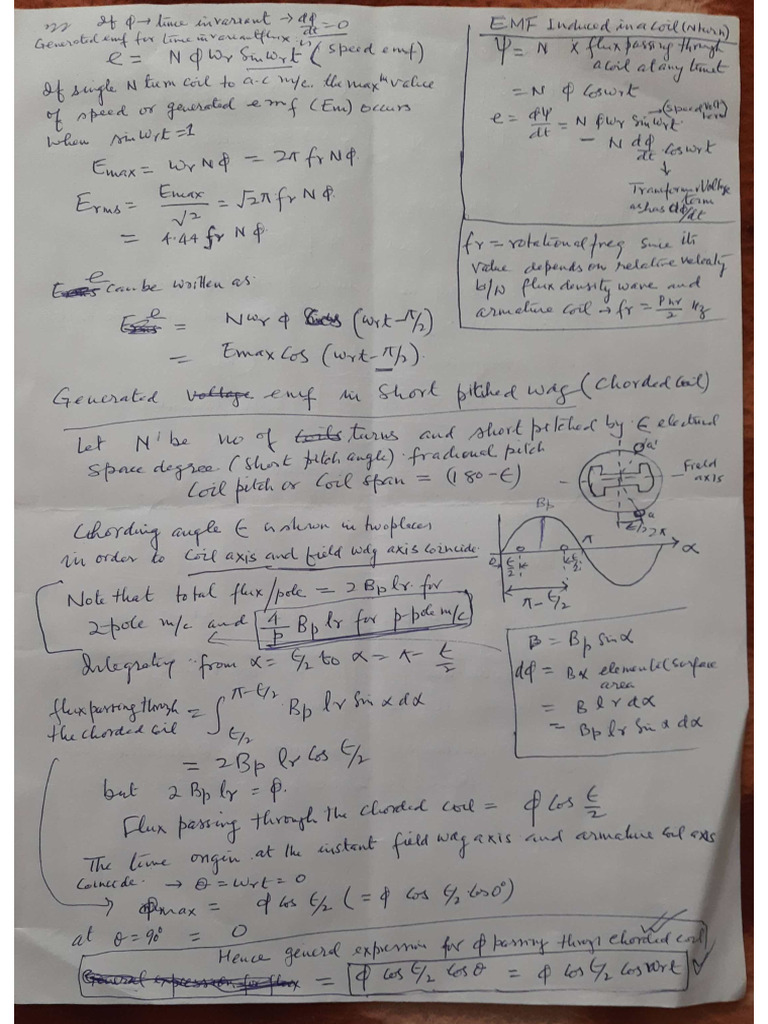 If φ → time invariant → dφ/dt = 0
Generated emf for time invariant flux is
e = N φ ωr Sin ωrt (speed emf)
If single N turn coil to a-c m/c. the maxm value
of speed or generated emf (Em) occurs
when sinωrt = 1
Emax = ωr N φ = 2π fr N φ
Erms = Emax/√2 = √2 π fr N φ
= 4.44 fr N φ
e can be written as
e = N ωr φ Cos (ωrt - π/2)
= Emax Cos (ωrt - π/2).
EMF Induced in a coil (N turn)
Ψ = N x flux passing through
a coil at any
= N φ Cos ωrt
e = dΨ/dt = N φ ωr Sin ωrt → (speed volt term)
- N dφ/dt Cos ωrt
↓
Transformer Voltage
term
as has dφ/dt
fr = rotational freq since its
value depends on relative velocity
b/w flux density wave and
armature coil → fr = P nr/2 Hz
Generated voltage emf in short pitched wdg (Chorded Coil)
Let N' be no of coils turns and short pitched by ε electrical
space degree. (Short pitch angle) fractional pitch
Coil pitch or Coil span = (180 - ε)
a'
Field
axis
a
ε/2
Chording angle ε is shown in two places
in order to Coil axis and field wdg axis coincide.
Bp
π
2π
α
ε/2
π - ε/2
Note that total flux/pole = 2 Bp lr for
2-pole m/c and 4/p Bp lr for p-pole m/c
Integrating from α = ε/2 to α = π - ε/2
B = Bp sin α
dφ = B x elemental surface
area
= B l r dα
= Bp l r Sin α dα
flux passing through
the chorded coil = ∫ε/2^π-ε/2 Bp lr Sin α dα
= 2Bp lr Cos ε/2
but 2 Bp lr = φ.
Flux passing through the chorded coil = φ Cos ε/2
The time origin at the instant field wdg axis and armature coil axis
Coincide. → θ = ωrt = 0
φmax = φ cos ε/2 (= φ cos ε/2 cos 0°)
at θ = 90° = 0
Hence general expression for φ passing through chorded coil
General expression for flux = φ cos ε/2 cos θ = φ cos ε/2 cos ωrt